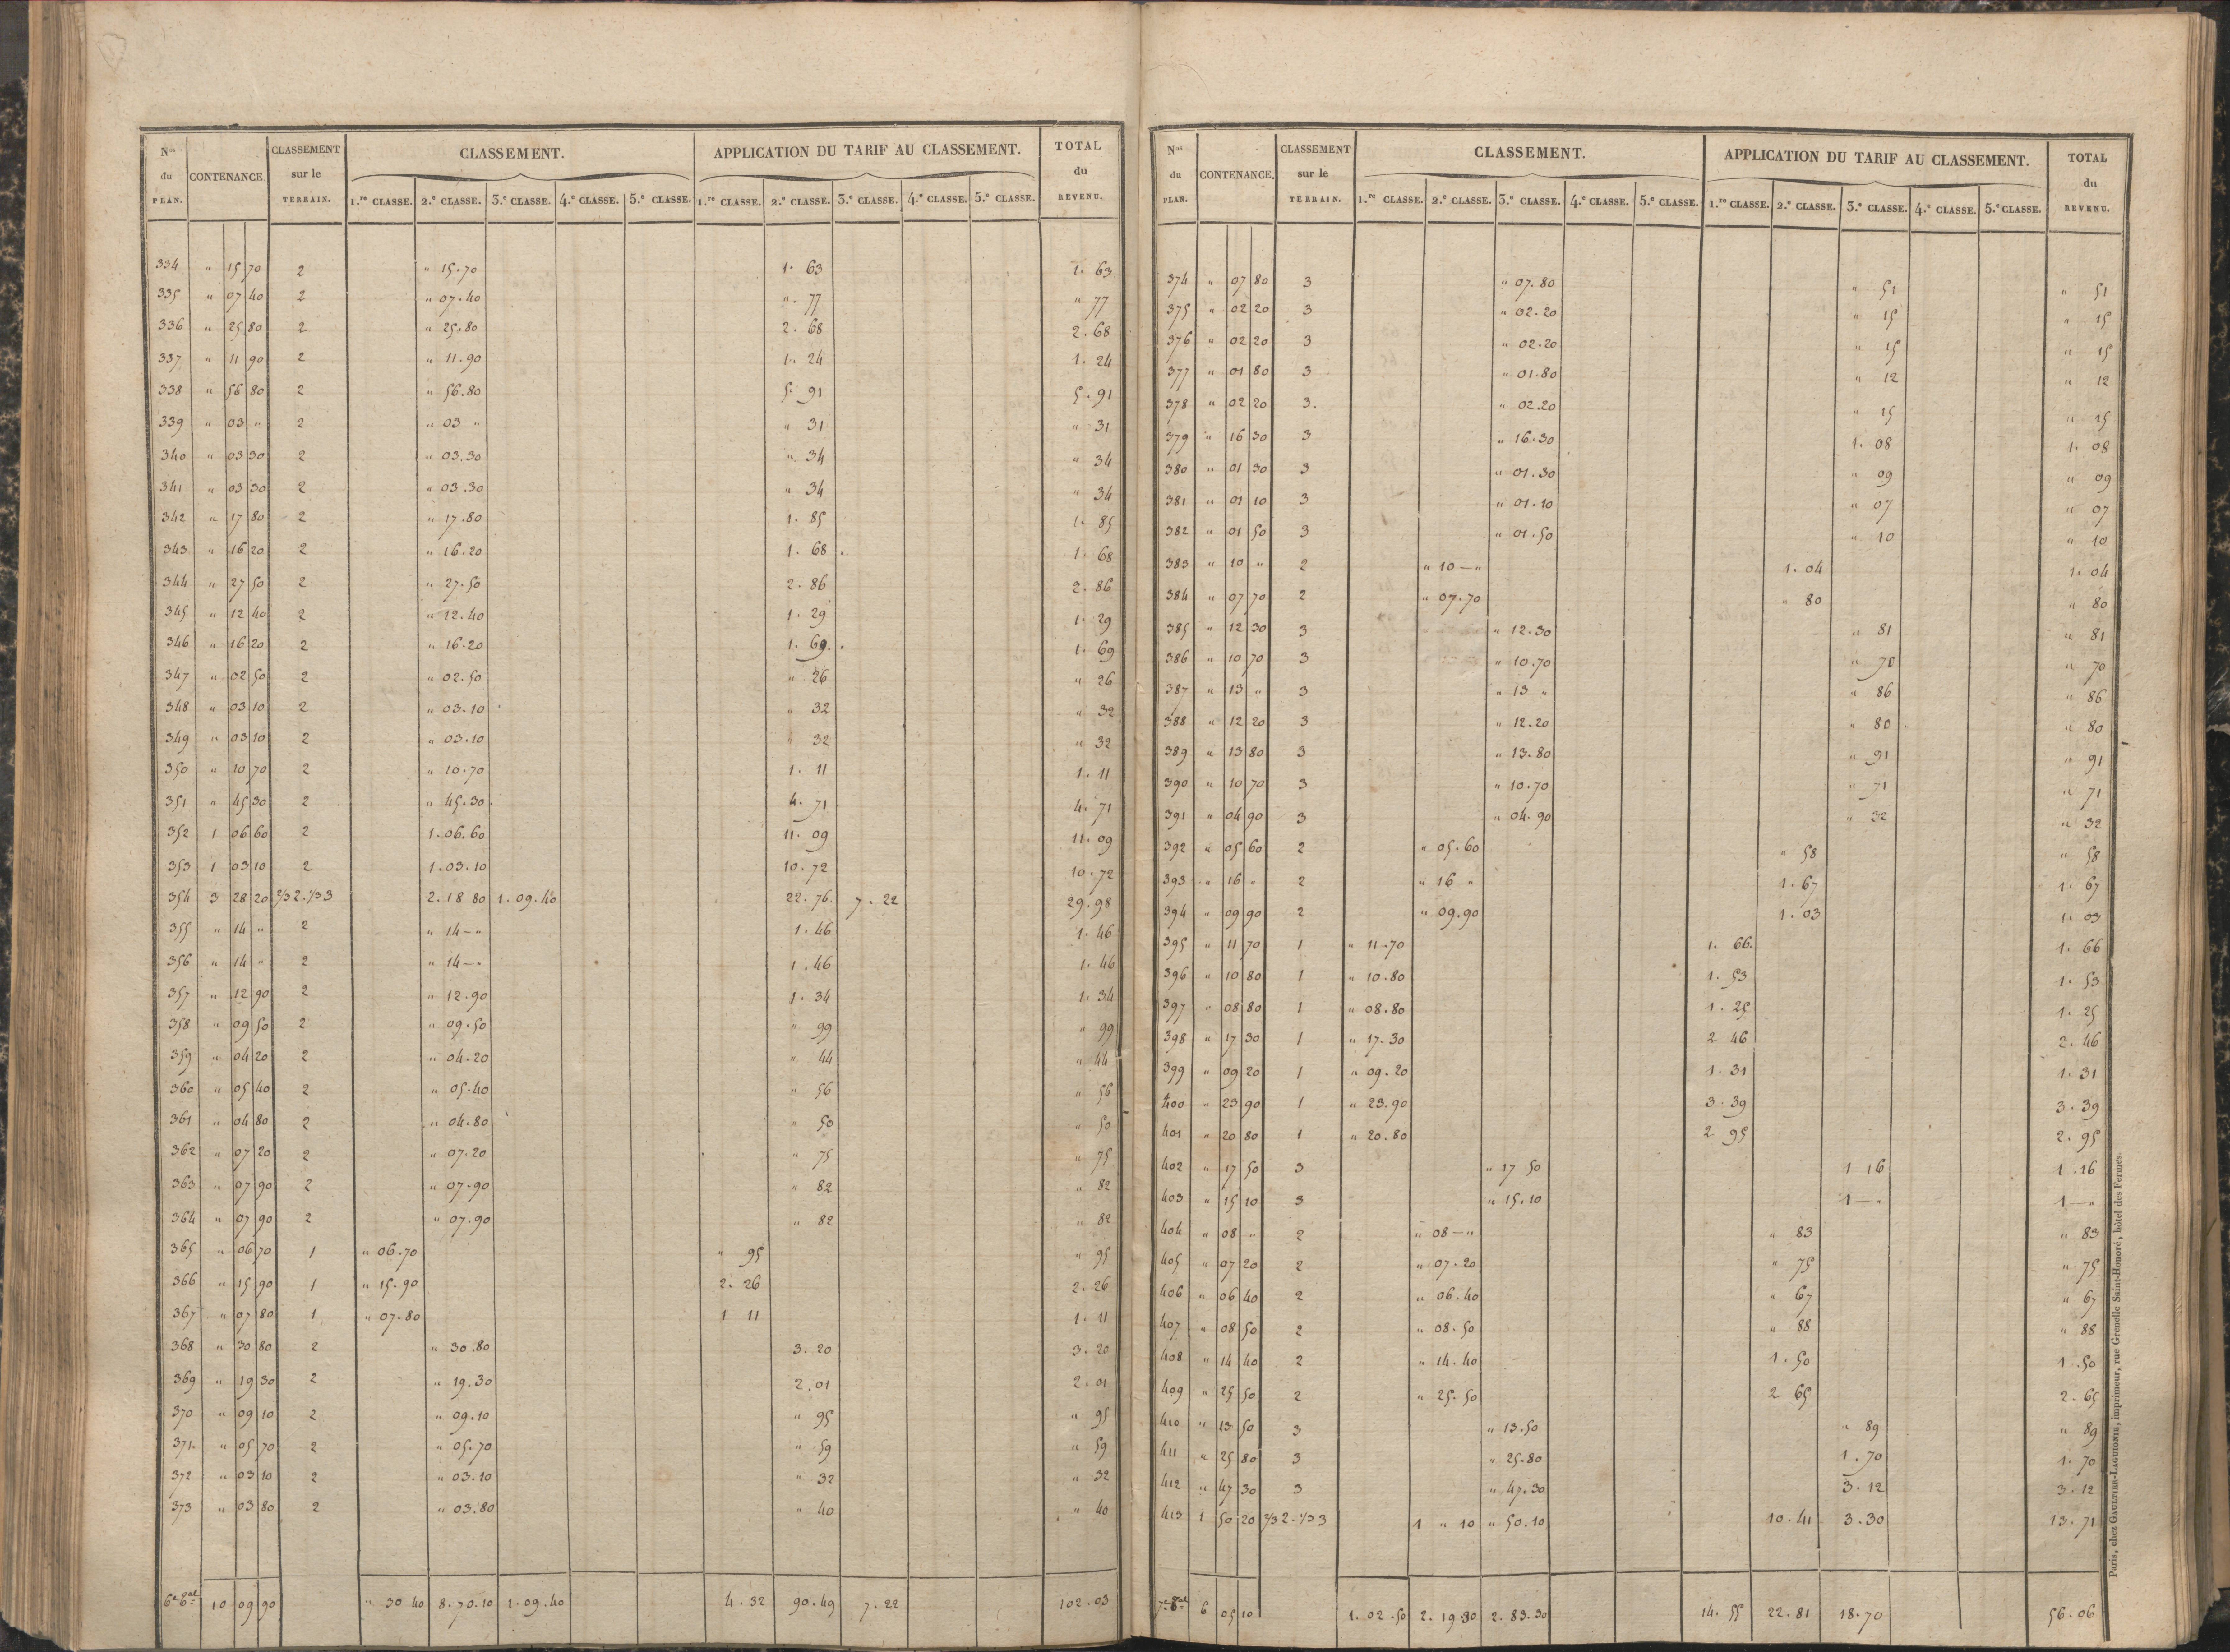 Nos du PLAN. CONTENANCE. CLASSEMENT sur le TERRAIN. CLASSEMENT. APPLICATION DU TARIF AU CLASSEMENT. TOTAL du REVENU.
1.re CLASSE. 2.e CLASSE. 3.e CLASSE. 4.e CLASSE. 5.e CLASSE. 1.re CLASSE. 2.e CLASSE. 3.e CLASSE. 4.e CLASSE. 5.e CLASSE.
334 " 15 70 2 " 15.70 1. 63 1. 63
335 " 07 40 2 " 07.40 ". 77 " 77
336 " 25 80 2 " 25.80 2. 68 2. 68
337 " 11 90 2 " 11.90 1. 24 1. 24
338 " 56 80 2 " 56.80 5. 91 5. 91
339 " 03 " 2 " 03 " " 31 " 31
340 " 03 30 2 " 03.30 ". 34 " 34
341 " 03 30 2 " 03.30 " 34 " 34
342 " 17 80 2 " 17.80 1. 85 1. 85
343 " 16 20 2 " 16.20 1. 68 . 1. 68
344 " 27 50 2 " 27.50 2. 86 2. 86
345 " 12 40 2 " 12.40 1. 29 1. 29
346 " 16 20 2 " 16.20 1. 69. . 1. 69
347 " 02 50 2 " 02.50 " 26 " 26
348 " 03 10 2 " 03.10 " 32 " 32
349 " 03 10 2 " 03.10 " 32 " 32
350 " 10 70 2 " 10.70 1. 11 1. 11
351 " 45 30 2 " 45.30. 4. 71 4. 71
352 1 06 60 2 1.06.60 11. 09 11. 09
353 1 03 10 2 1.03.10 10.72 10.72
354 3 28 20 2/3 2. 1/3 3 2.18 80 1.09.40 22.76. 7. 22 29.98
355 " 14 " 2 " 14 — " 1. 46 1. 46
356 " 14 " 2 " 14 — " 1. 46 1. 46
357 " 12 90 2 " 12.90 1. 34 1. 34
358 " 09 50 2 " 09.50 " 99 " 99
359 " 04 20 2 " 04.20 " 44 " 44
360 " 05 40 2 " 05.40 " 56 " 56
361 " 04 80 2 " 04.80 " 50 " 50
362 " 07 20 2 " 07.20 " 75 " 75
363 " 07 90 2 " 07.90 " 82 " 82
364 " 07 90 2 " 07.90 " 82 " 82
365 " 06 70 1 " 06.70 " 95 " 95
366 " 15 90 1 " 15.90 2. 26 2. 26
367 " 07 80 1 " 07.80 1 11 1. 11
368 " 30 80 2 " 30.80 3. 20 3. 20
369 " 19 30 2 " 19.30 2. 01 2. 01
370 " 09 10 2 " 09.10 " 95 " 95
371. " 05 70 2 " 05.70 " 59 " 59
372 " 03 10 2 " 03.10 " 32 " 32
373 " 03 80 2 " 03.80 " 40 " 40
10 09 90 " 30 40 8.70.10 1.09.40 4. 32 90.49 7. 22 102.03
Nos du PLAN. CONTENANCE. CLASSEMENT sur le TERRAIN. CLASSEMENT. APPLICATION DU TARIF AU CLASSEMENT. TOTAL du REVENU.
1.re CLASSE. 2.e CLASSE. 3.e CLASSE. 4.e CLASSE. 5.e CLASSE. 1.re CLASSE. 2.e CLASSE. 3.e CLASSE. 4.e CLASSE. 5.e CLASSE.
374 " 07 80 3 " 07.80 " 51 " 51
375 " 02 20 3 " 02.20 " 15 " 15
376 " 02 20 3 " 02.20 " 15 " 15
377 " 01 80 3 " 01.80 " 12 " 12
378 " 02 20 3. " 02.20 " 15 " 15
379 " 16 30 3 " 16.30 1. 08 1. 08
380 " 01 30 3 " 01.30 " 09 " 09
381 " 01 10 3 " 01.10 " 07 " 07
382 " 01 50 3 " 01.50 " 10 " 10
383 " 10 " 2 " 10 — " 1. 04 1. 04
384 " 07 70 2 " 07.70 " 80 " 80
385 " 12 30 3 " 12.30 " 81 " 81
386 " 10 70 3 " 10.70 " 70 " 70
387 " 13 " 3 " 13 " " 86 " 86
388 " 12 20 3 " 12.20 " 80 . " 80
389 " 13 80 3 " 13.80 " 91 " 91
390 " 10 70 3 " 10.70 " 71 " 71
391 " 04 90 3 " 04.90 " 32 " 32
392 " 05 60 2 " 05.60 " 58 " 58
393 " 16 " 2 " 16 " 1. 67 1. 67
394 " 09 90 2 " 09.90 1. 03 1. 03
395 " 11 70 1 " 11.70 1. 66. 1. 66
396 " 10 80 1 " 10.80 1. 53 1. 53
397 " 08 80 1 " 08.80 1. 25 1. 25
398 " 17 30 1 " 17.30 2 46 2. 46
399 " 09 20 1 " 09.20 1. 31 1. 31
400 " 23 90 1 " 23.90 3. 39 3. 39
401 " 20 80 1 " 20.80 2 95 2. 95
402 " 17 50 3 " 17 50 1 16 1. 16
403 " 15 10 3 " 15.10 1 — " 1 — "
404 " 08 " 2 " 08 — " " 83 " 83
405 " 07 20 2 " 07.20 " 75 " 75
406 " 06 40 2 " 06.40 " 67 " 67
407 " 08 50 2 " 08.50 " 88 " 88
408 " 14 40 2 " 14.40 1. 50 1. 50
409 " 25 50 2 " 25.50 2 65 2. 65
410 " 13 50 3 " 13.50 " 89 " 89
411 " 25 80 3 " 25.80 1. 70 1. 70
412 " 47 30 3 " 47.30 3. 12 3. 12
413 1 50 20 2/3 2 - 1/3 3 1 " 10 " 50.10 10.41 3.30 13.71
6 05 10 1.02.50 2.19.30 2.83.30 14. 55 22.81 18.70 56.06
Paris, chez GAULTIER-LAGUIONIE, imprimeur, rue Grenelle Saint-Honoré, hôtel des Fermes.